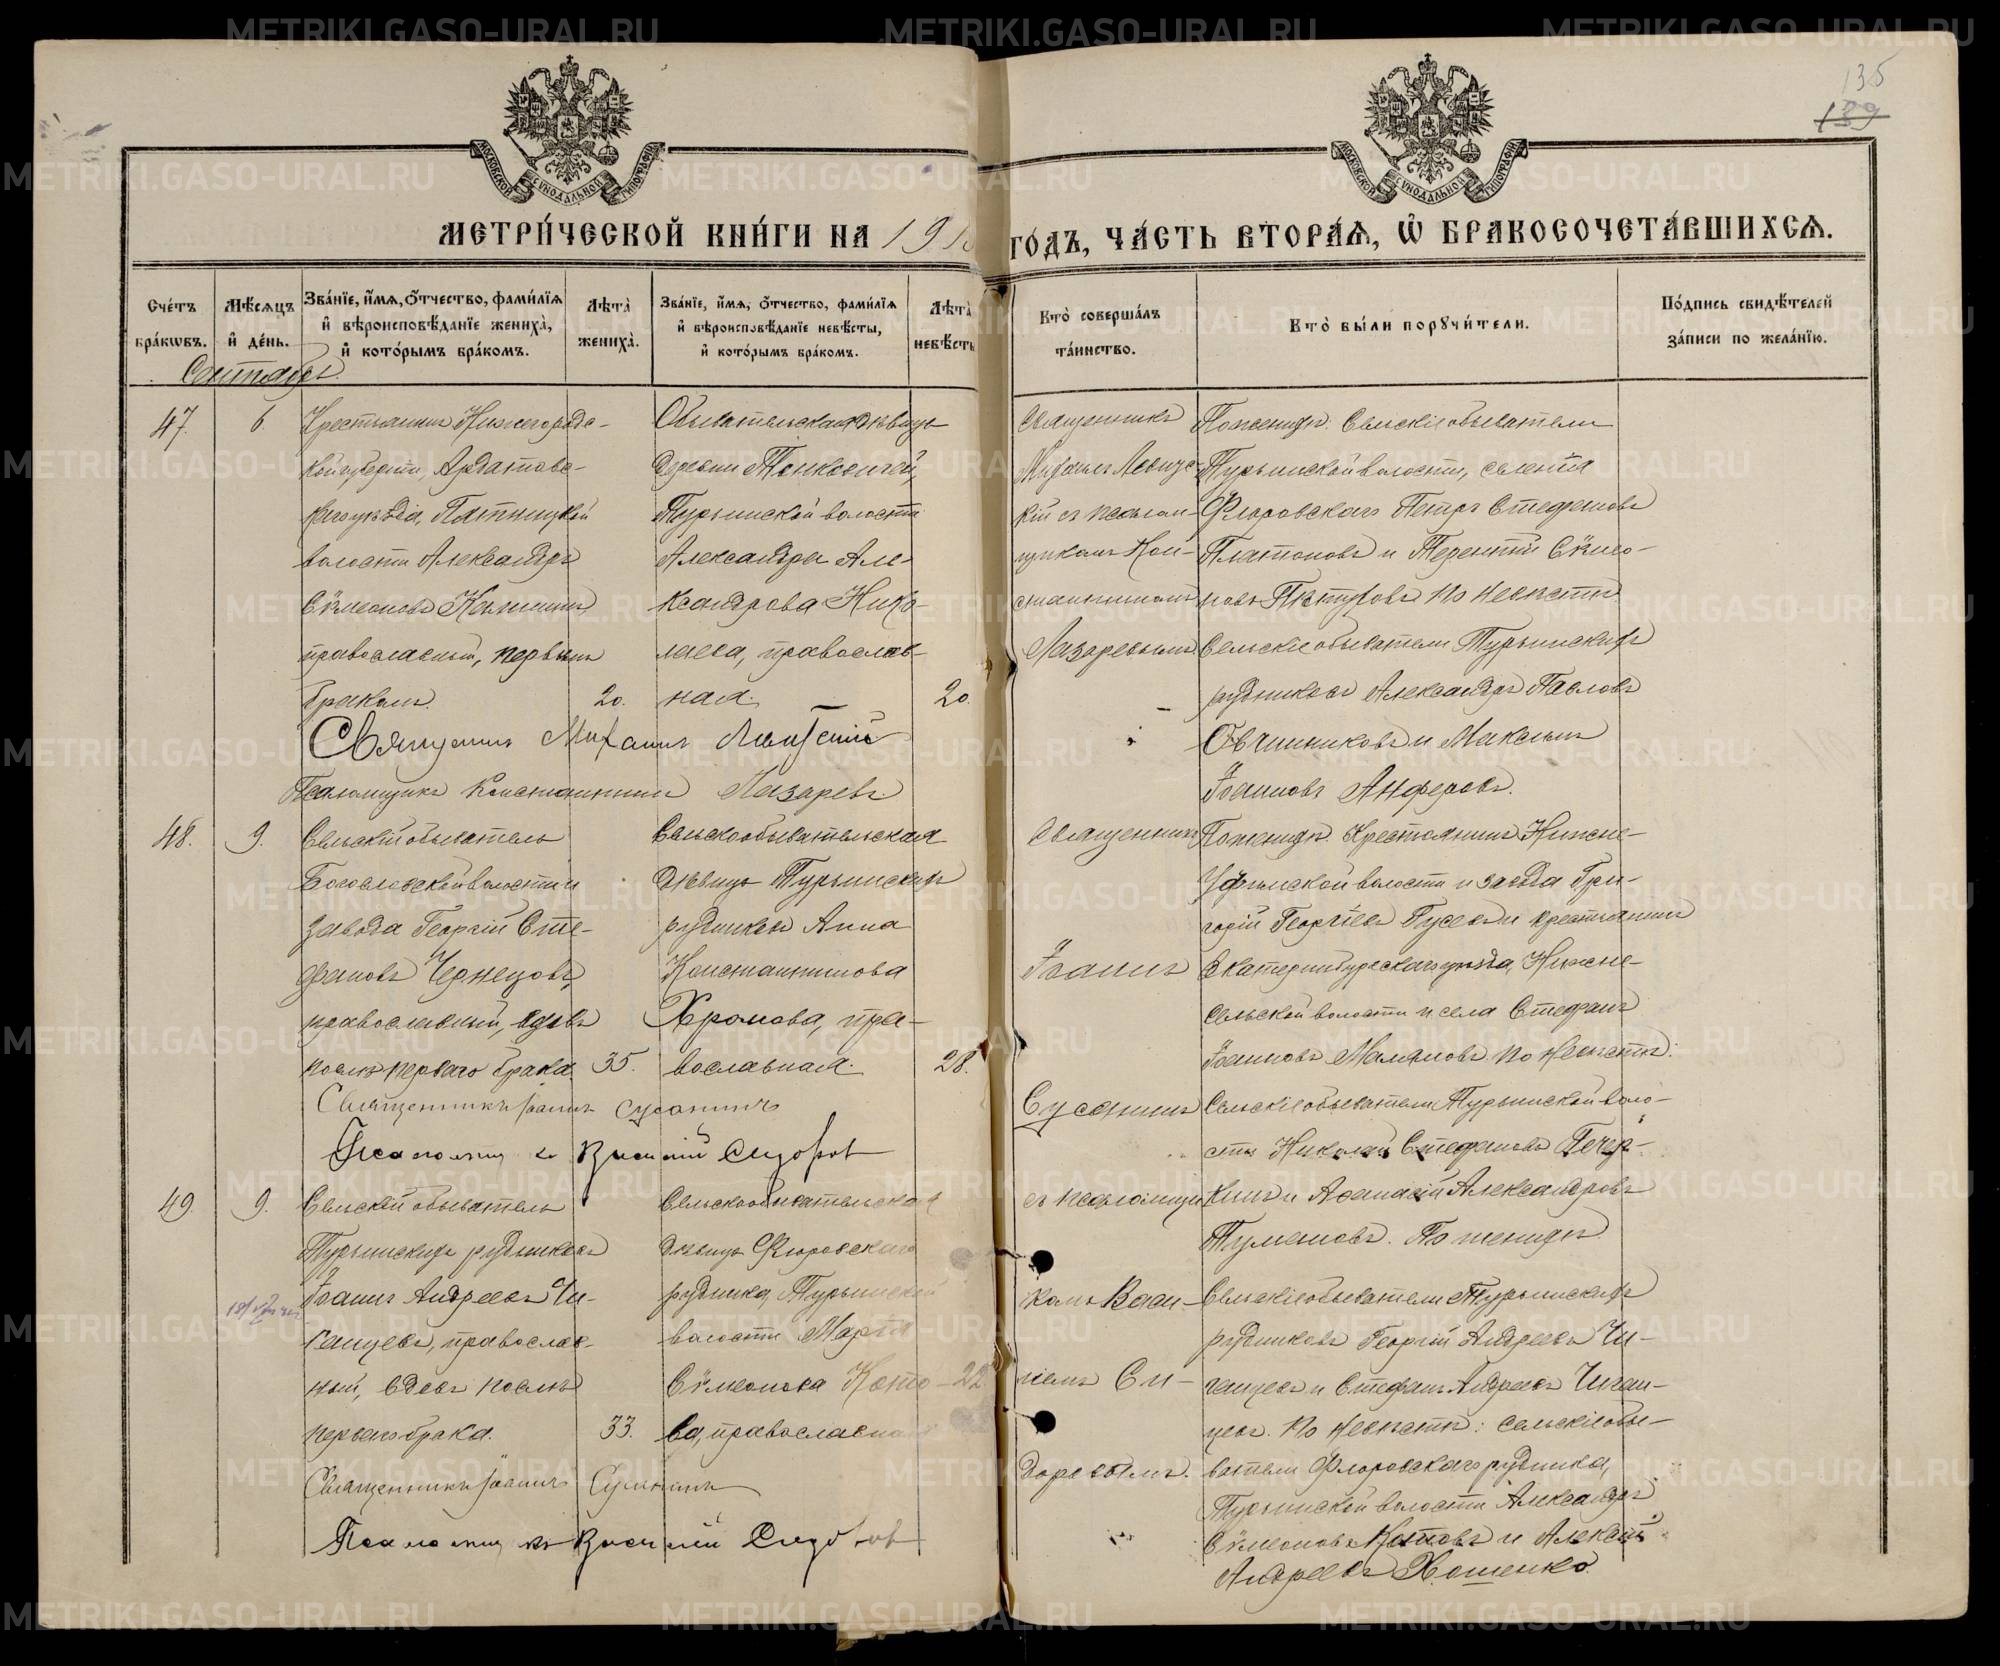 135
139
МОСКОВСКОЙ СУНОДАЛЬНОЙ ТИПОГРАФІИ
МОСКОВСКОЙ СУНОДАЛЬНОЙ ТИПОГРАФІИ
МЕТРИ́ЧЕСКОЙ КНИ́ГИ НА 191
ГО́ДЪ, ЧА́СТЬ ВТОРА́Ѧ, Ѡ҆ БРАКОСОЧЕТА́ВШИХСѦ.
Сче́тъ бра́кѡвъ.
Мѣ́сѧцъ и҆ де́нь.
Зва́нїе, и҆́мѧ, ѻ҆́тчество, фами́лїѧ и҆ вѣроисповѣ́данїе жениха̀, и҆ кото́рымъ бра́комъ.
Лѣ́та̀ жениха̀.
Зва́нїе, и҆́мѧ, ѻ҆́тчество, фами́лїѧ и҆ вѣроисповѣ́данїе невѣ́сты, и҆ кото́рымъ бра́комъ.
Лѣ́та̀ невѣ́сты
Кто̀ соверша́лъ та́инство.
Кто̀ бы́ли порꙋчи́тели.
По́дпись свидѣ́телей за́писи по жела́нїю.
Сентябрь.
47. 6.
Крестьянинъ Нижегородс-
кой губерніи, Ардатовс-
каго уѣзда, Пятницкой
волости Александръ
Сѵмеоновъ
православный, первымъ
бракомъ. 20.
Обывательская дѣвица
деревни
Турьинской волости
Александра Але-
ксандрова Нико-
лаева, православ-
ная. 20.
Священникъ
Михаилъ
кій съ псалом-
щикомъ Кон-
стантиномъ
Лазаревымъ
По женихѣ: Сельскіе обыватели
Турьинской волости, селенія
Фроловскаго Петръ Стефановъ
Платоновъ и Терентій Сѵмео-
новъ Пѣтуховъ по невѣстѣ
Сельскіе обыватели Турьинскихъ
рудниковъ Александръ Павловъ
Овчинниковъ и Максимъ
Іоанновъ Анферовъ.
Священникъ Михаилъ
Псаломщикъ Константинъ Лазаревъ.
48. 9.
Сельскій обыватель
Богословской волости и
завода Георгій Сте-
фановъ Чернецовъ,
православный, вдовъ
послѣ перваго брака. 35.
Сельскообывательская
дѣвица Турьинскихъ
рудниковъ Анна
Константинова
Хромова, пра-
вославная. 28.
Священникъ
Іоаннъ
Сусанинъ
По женихѣ: Крестьянинъ Нижне-
Уфимской волости и завода Гри-
горій Георгіевъ Гусевъ и крестьянинъ
Екатеринбургскаго уѣзда, Нижне-
сельской волости и села Стефанъ
Іоанновъ по невѣстѣ:
Сельскіе обыватели Турьинской воло-
сти Николай Стефановъ Печер-
кинъ и Аѳанасій Александровъ
Тумановъ. По женихѣ
Священникъ Іоаннъ Сусанинъ
Псаломщикъ Василій Сидоровъ
49 9.
Сельскій обыватель
Турьинскихъ рудниковъ
Іоаннъ Андреевъ Чи-
ганцевъ, православ-
ный, вдовъ послѣ
перваго брака. 33.
Сельскообывательская
дѣвица Фроловскаго
рудника, Турьинской
волости Марія
Сѵмеонова Кото- 22
ва, православная
съ псаломщи
комъ Васи-
ліемъ Си-
доровымъ.
Сельскіе обыватели Турьинскихъ
рудниковъ Георгій Андреевъ Чи-
ганцевъ и Стефанъ Андреевъ Чиган-
цевъ. по невѣстѣ: сельскіе обы-
ватели Фроловскаго рудника,
Турьинской волости Александръ
Сѵмеоновъ Котовъ и Алексѣй
Андреевъ Хоменко.
Священникъ Іоаннъ Сусанинъ
Псаломщикъ Василій Сидоровъ
METRIKI.GASO-URAL.RU